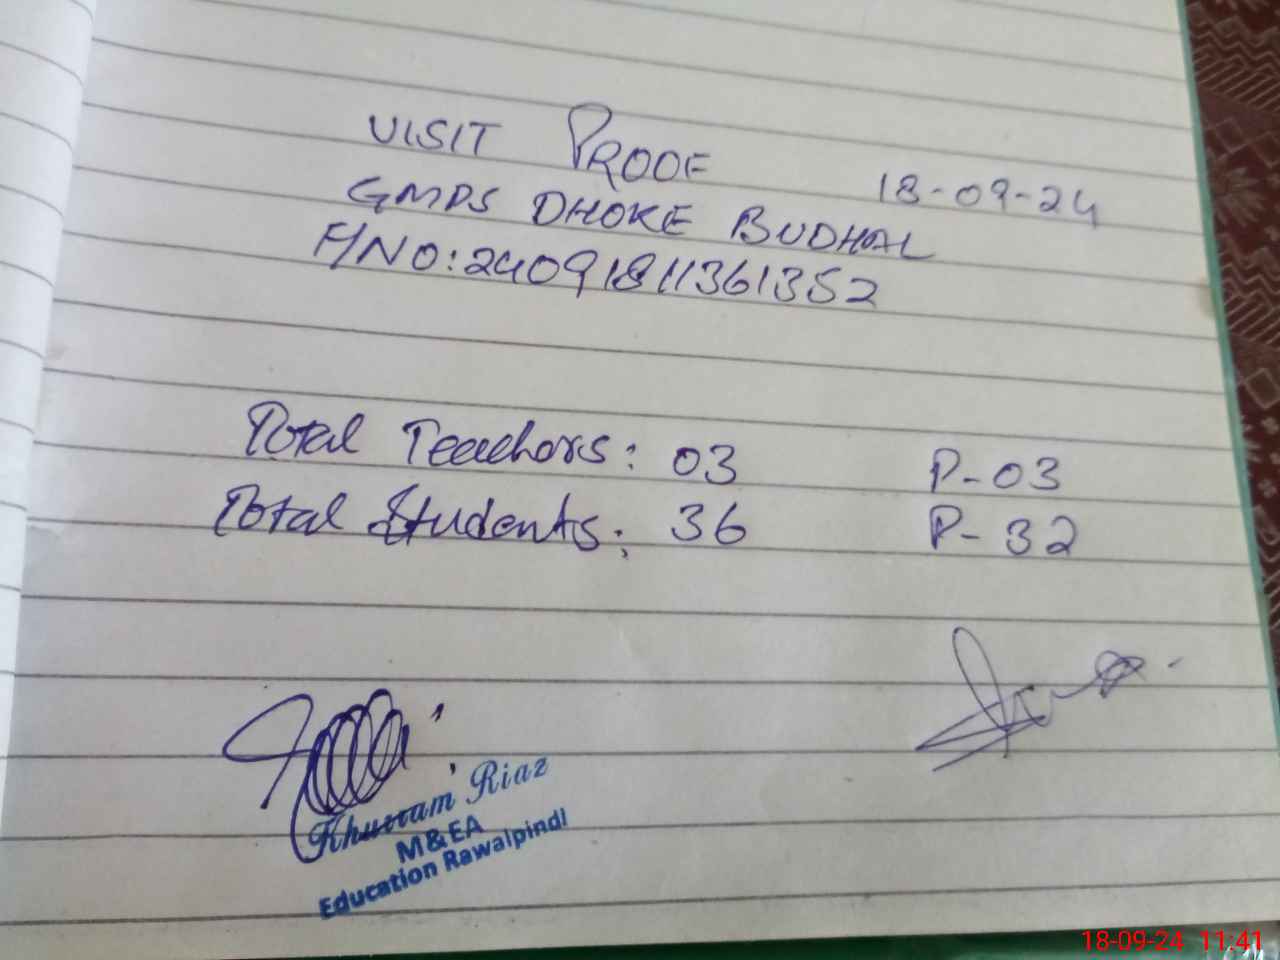 VISIT PROOF
18-09-24
GMPS DHOKE BUDHAL
F/NO: 24091811361352
Total Teachers: 03 P-03
Total Students: 36 P-32
Khurram Riaz
M&EA
Education Rawalpindi
18-09-24 11:41